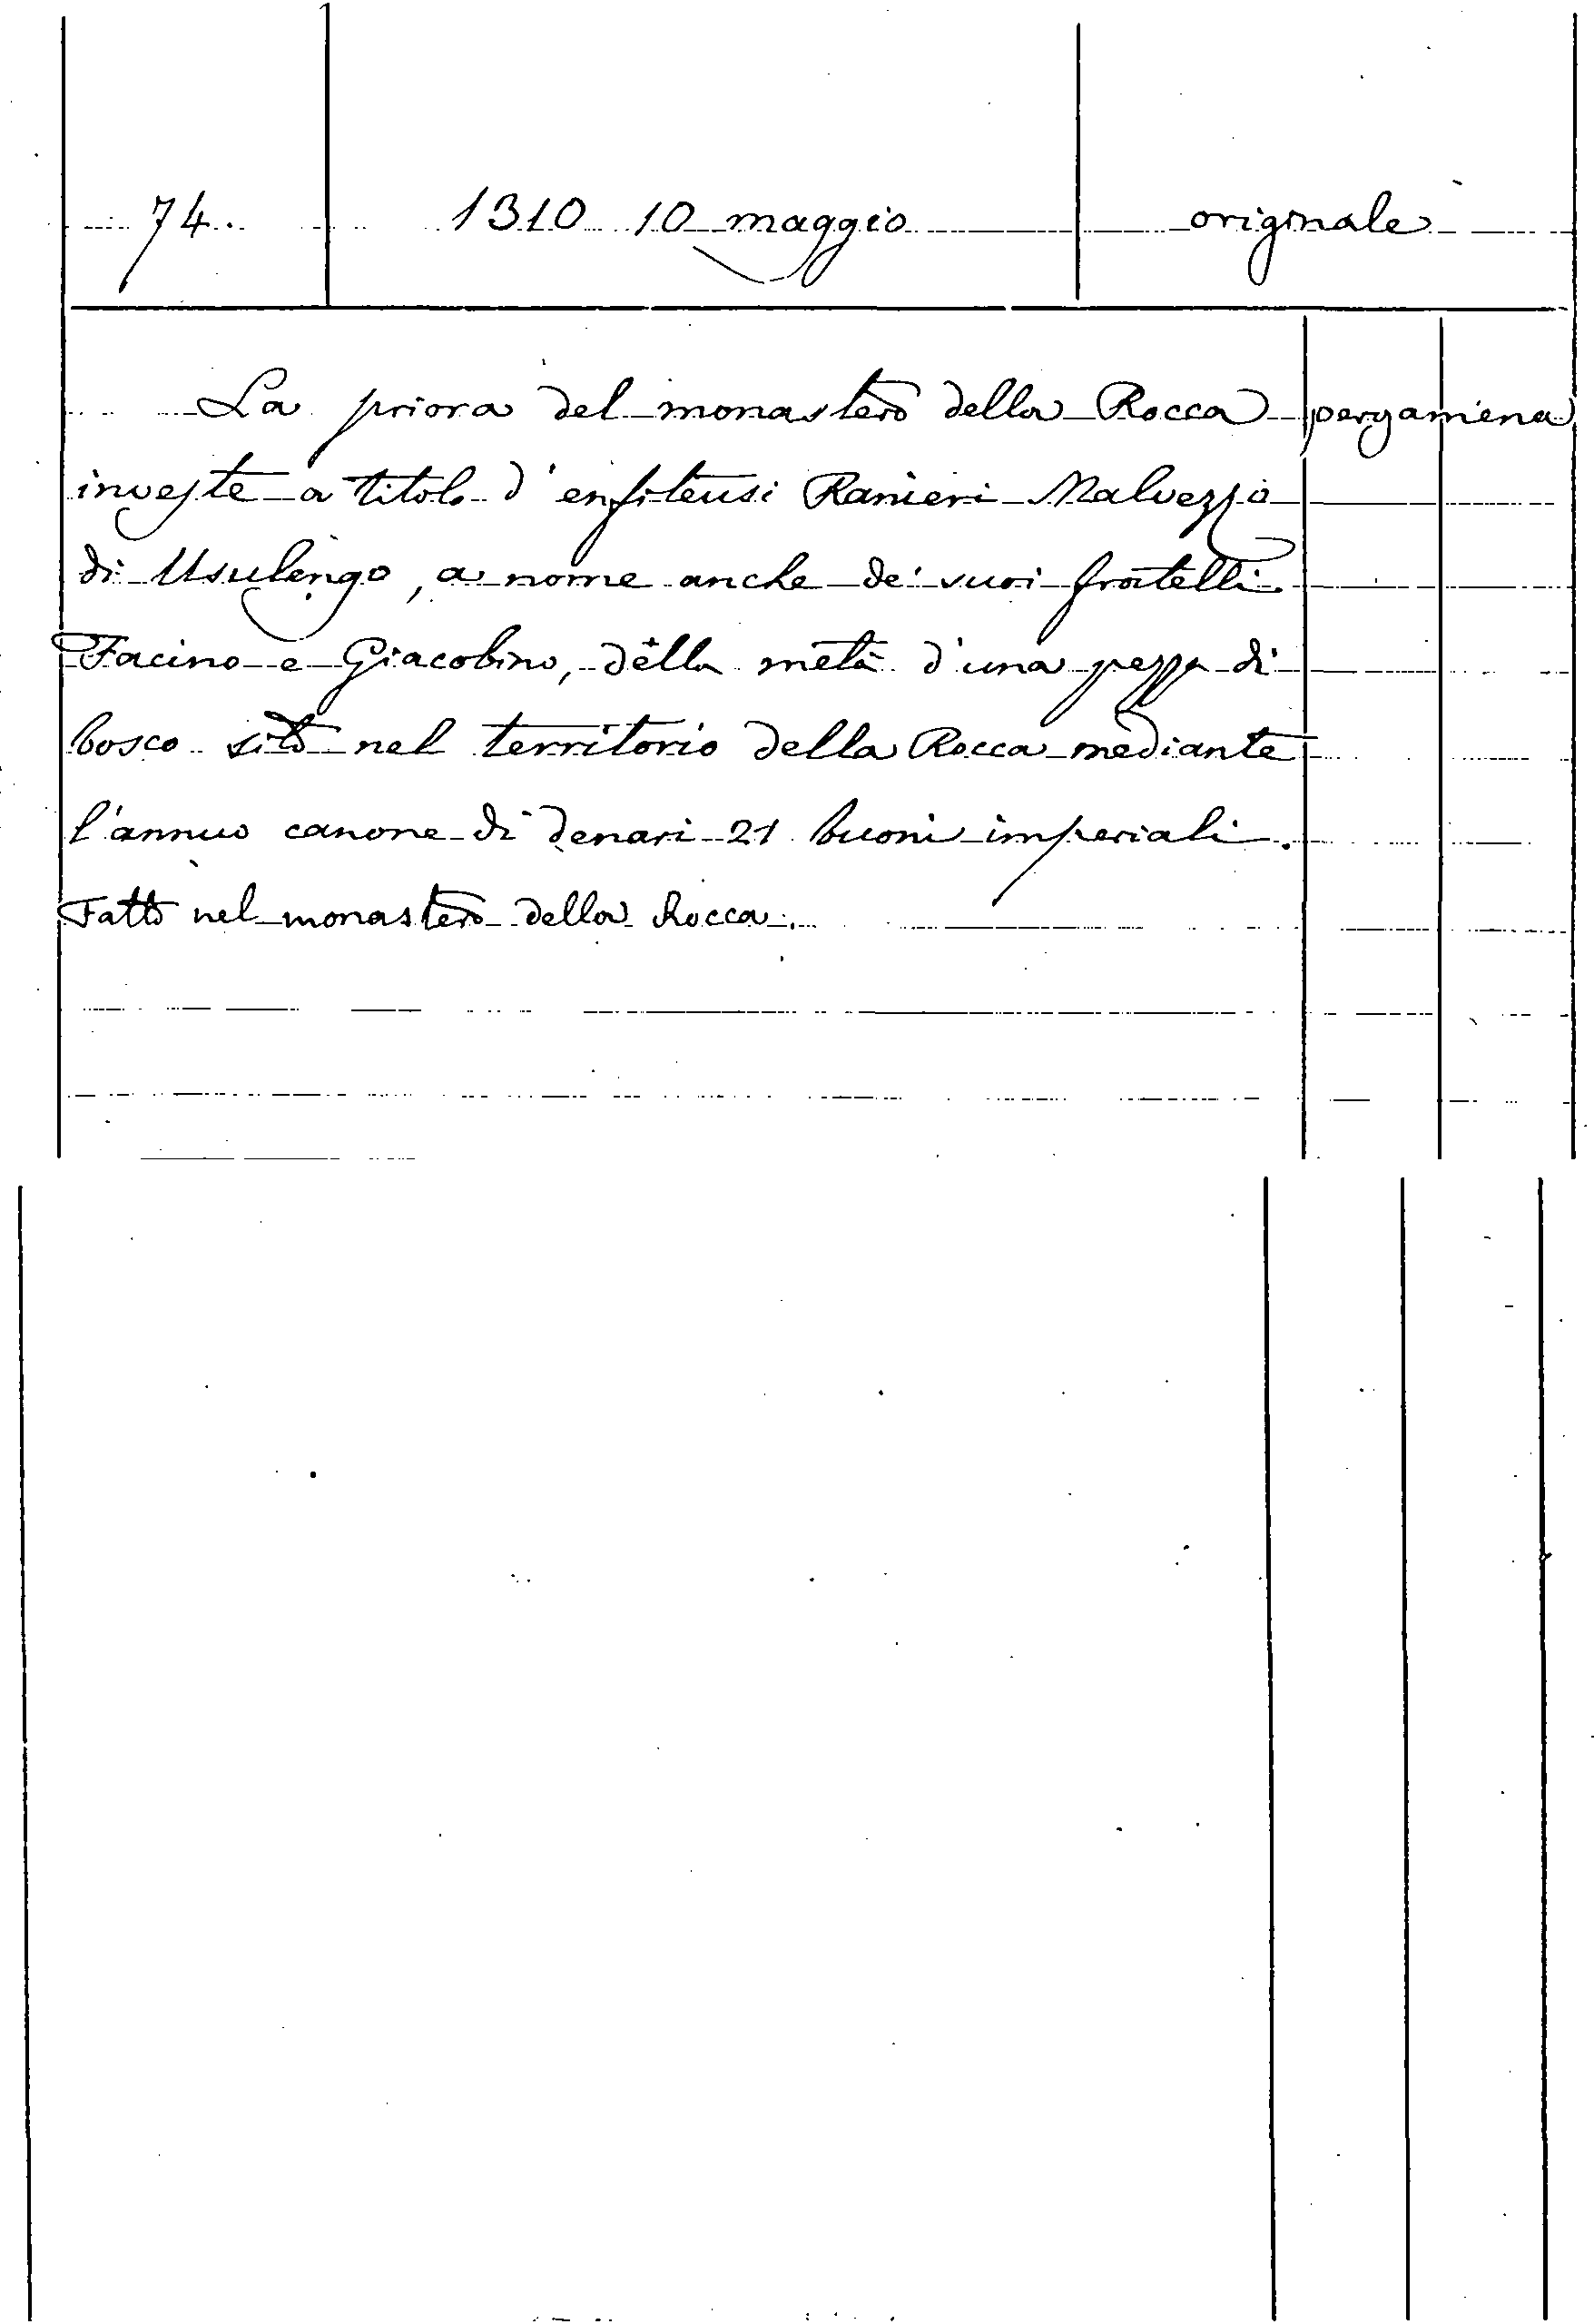 74. 1310 10 maggio originale
La priora del monastero della Rocca pergamena
investe a titolo d'enfiteusi Ranieri Malvezzo
di Usulengo, a nome anche de' suoi fratelli
Facino e Giacobino, della metà d'una pezza di
bosco sito nel territorio della Rocca mediante
l'annuo canone di denari 21 buoni imperiali.
Fatto nel monastero della Rocca.